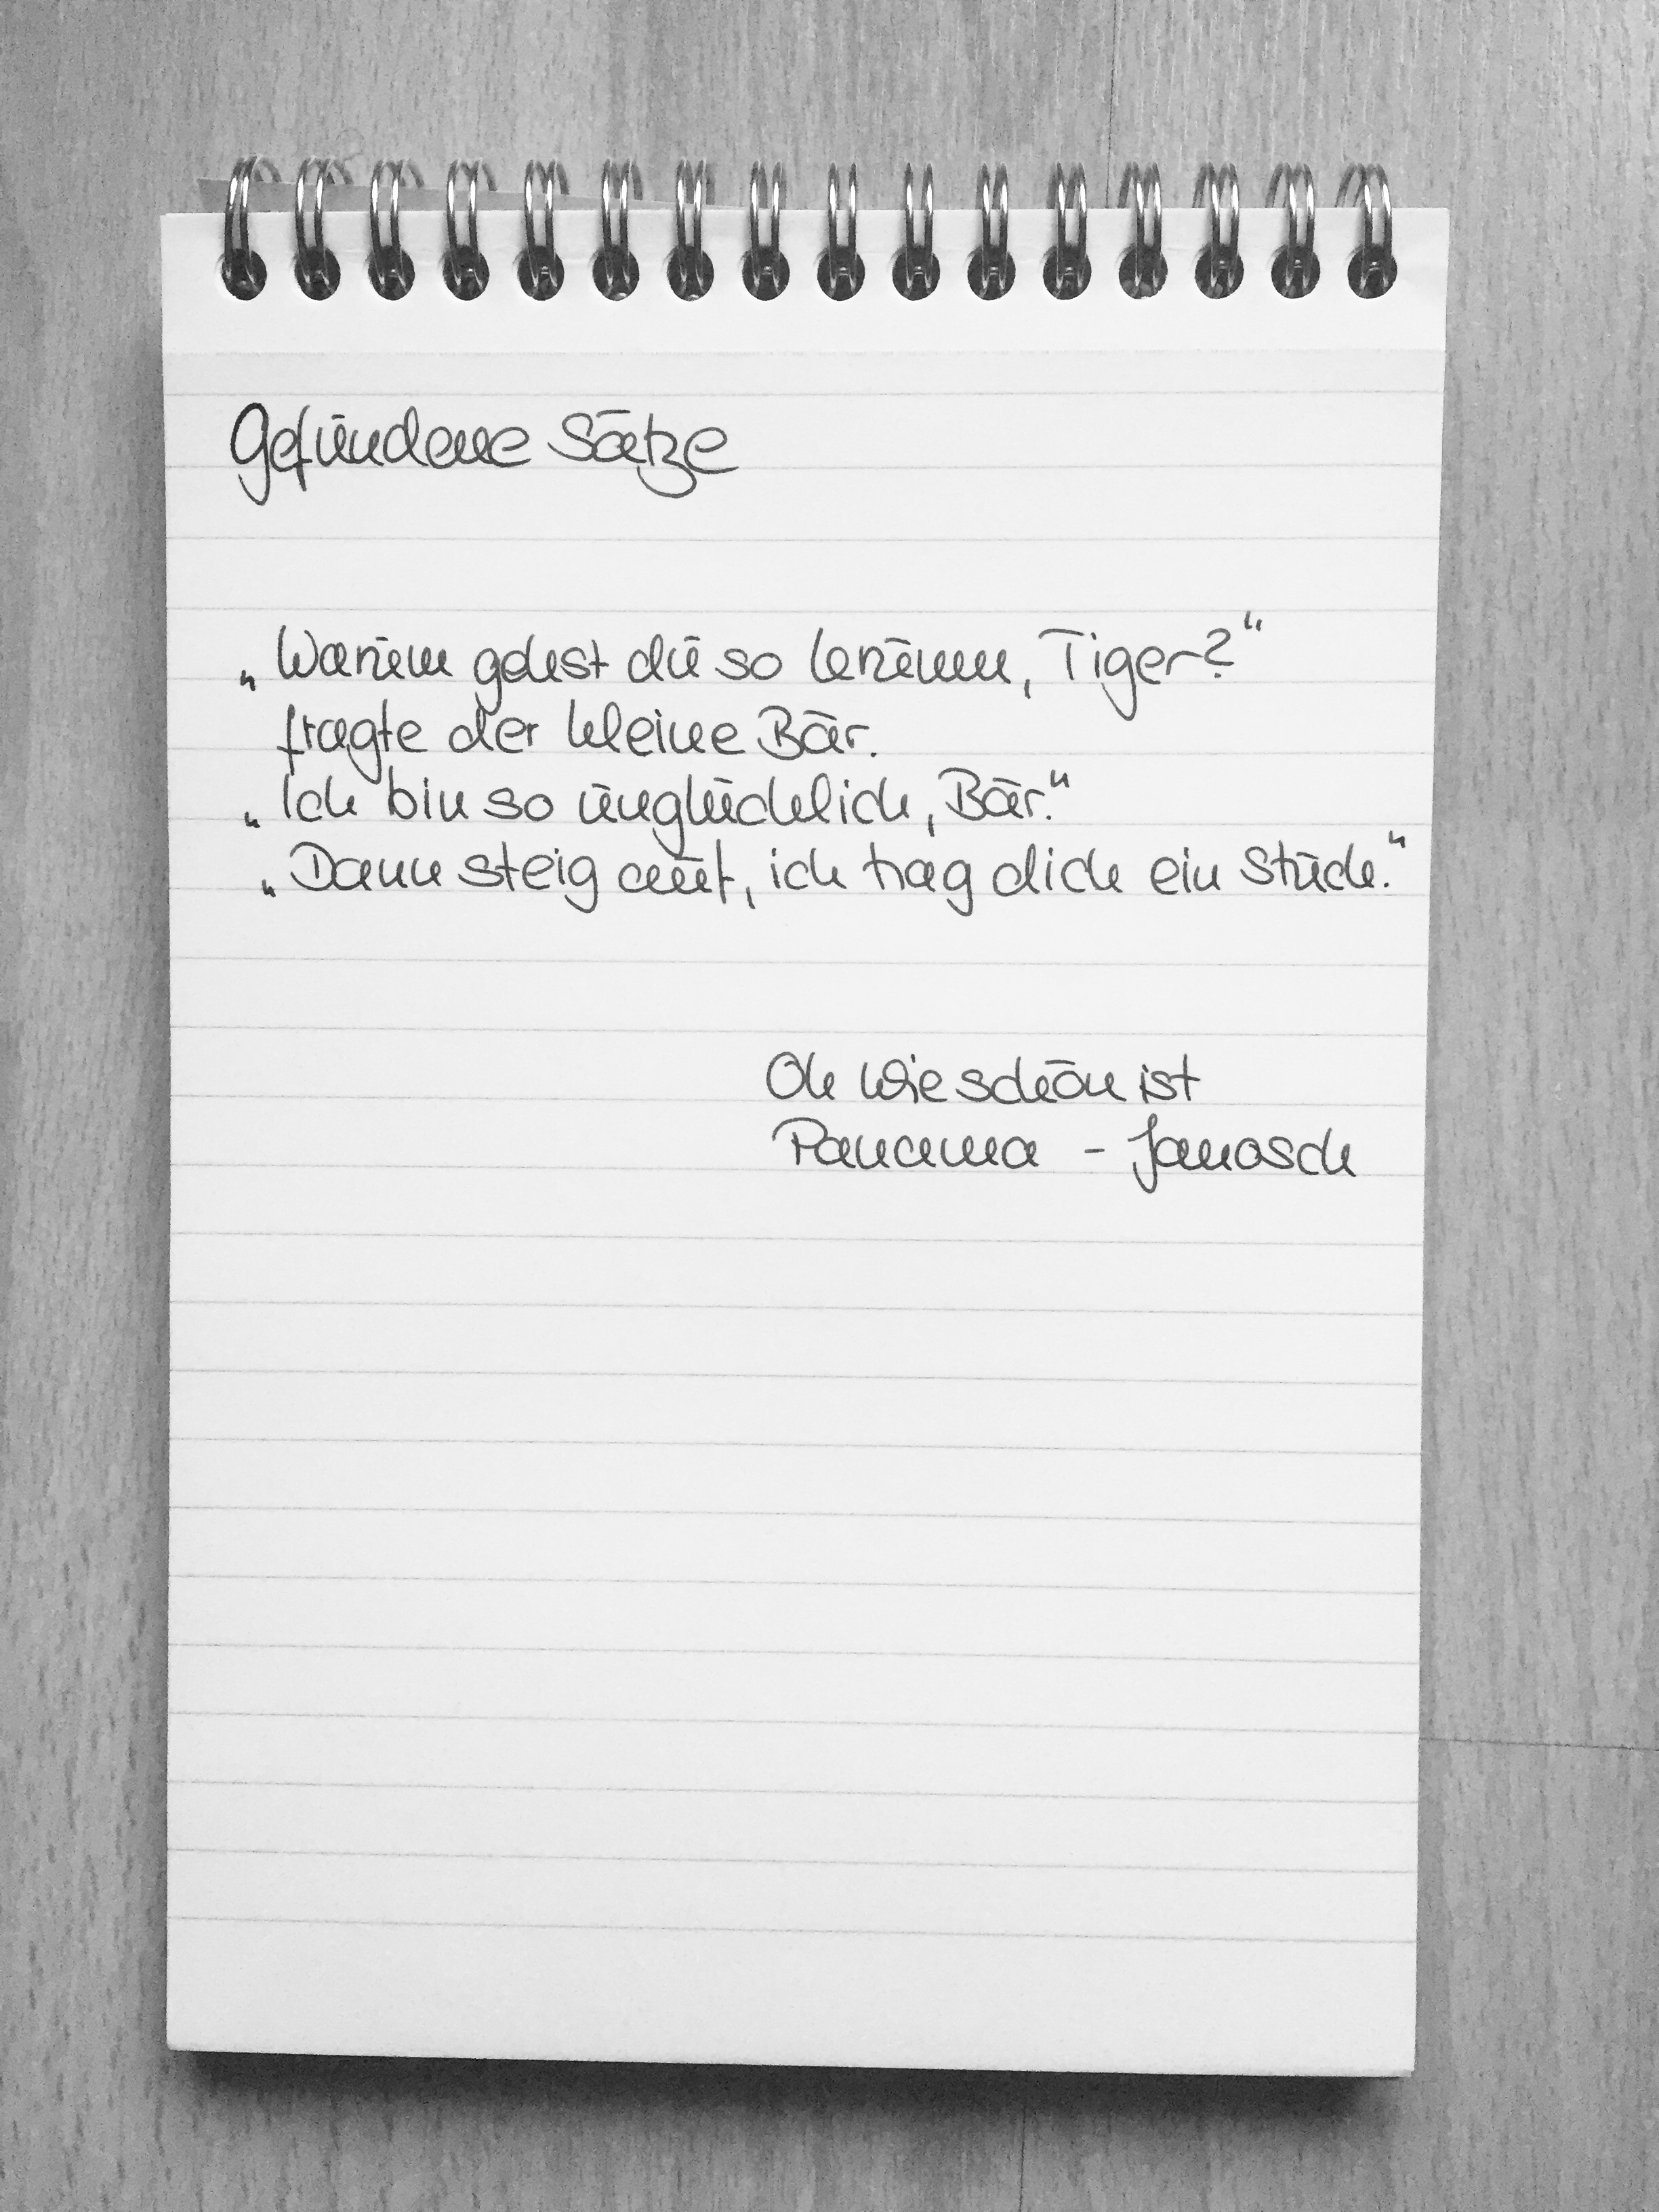 Gefundene Sätze
„Warum gehst du so krumm, Tiger?“
fragte der kleine Bär.
„Ich bin so unglücklich, Bär.“
„Dann steig auf, ich trag dich ein Stück.“
Oh wie schön ist
Panama - Janosch